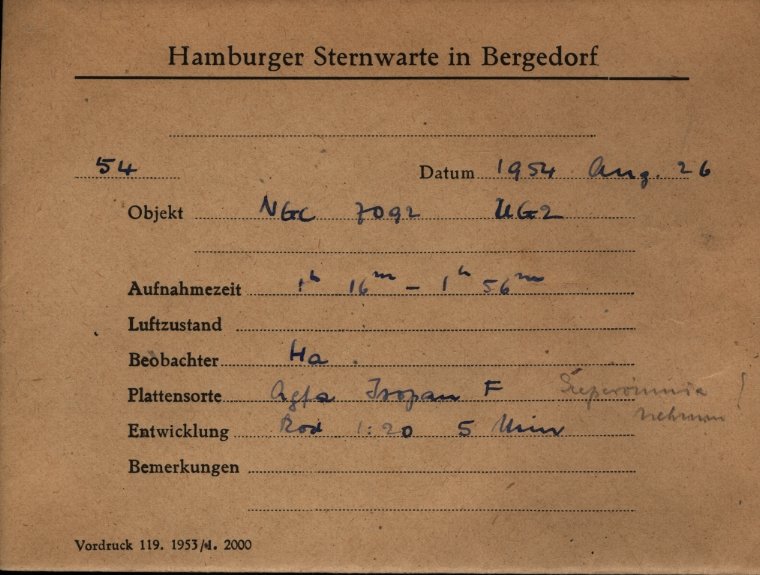 Hamburger Sternwarte in Bergedorf
54 Datum 1954 Aug. 26
Objekt NGC 7092 UG2
Aufnahmezeit 1h 16m – 1h 56m
Luftzustand
Beobachter Ha.
Plattensorte Agfa Isopan F
nehmen!
Entwicklung Rod 1:20 5 Min
Bemerkungen
Vordruck 119. 1953/1. 2000